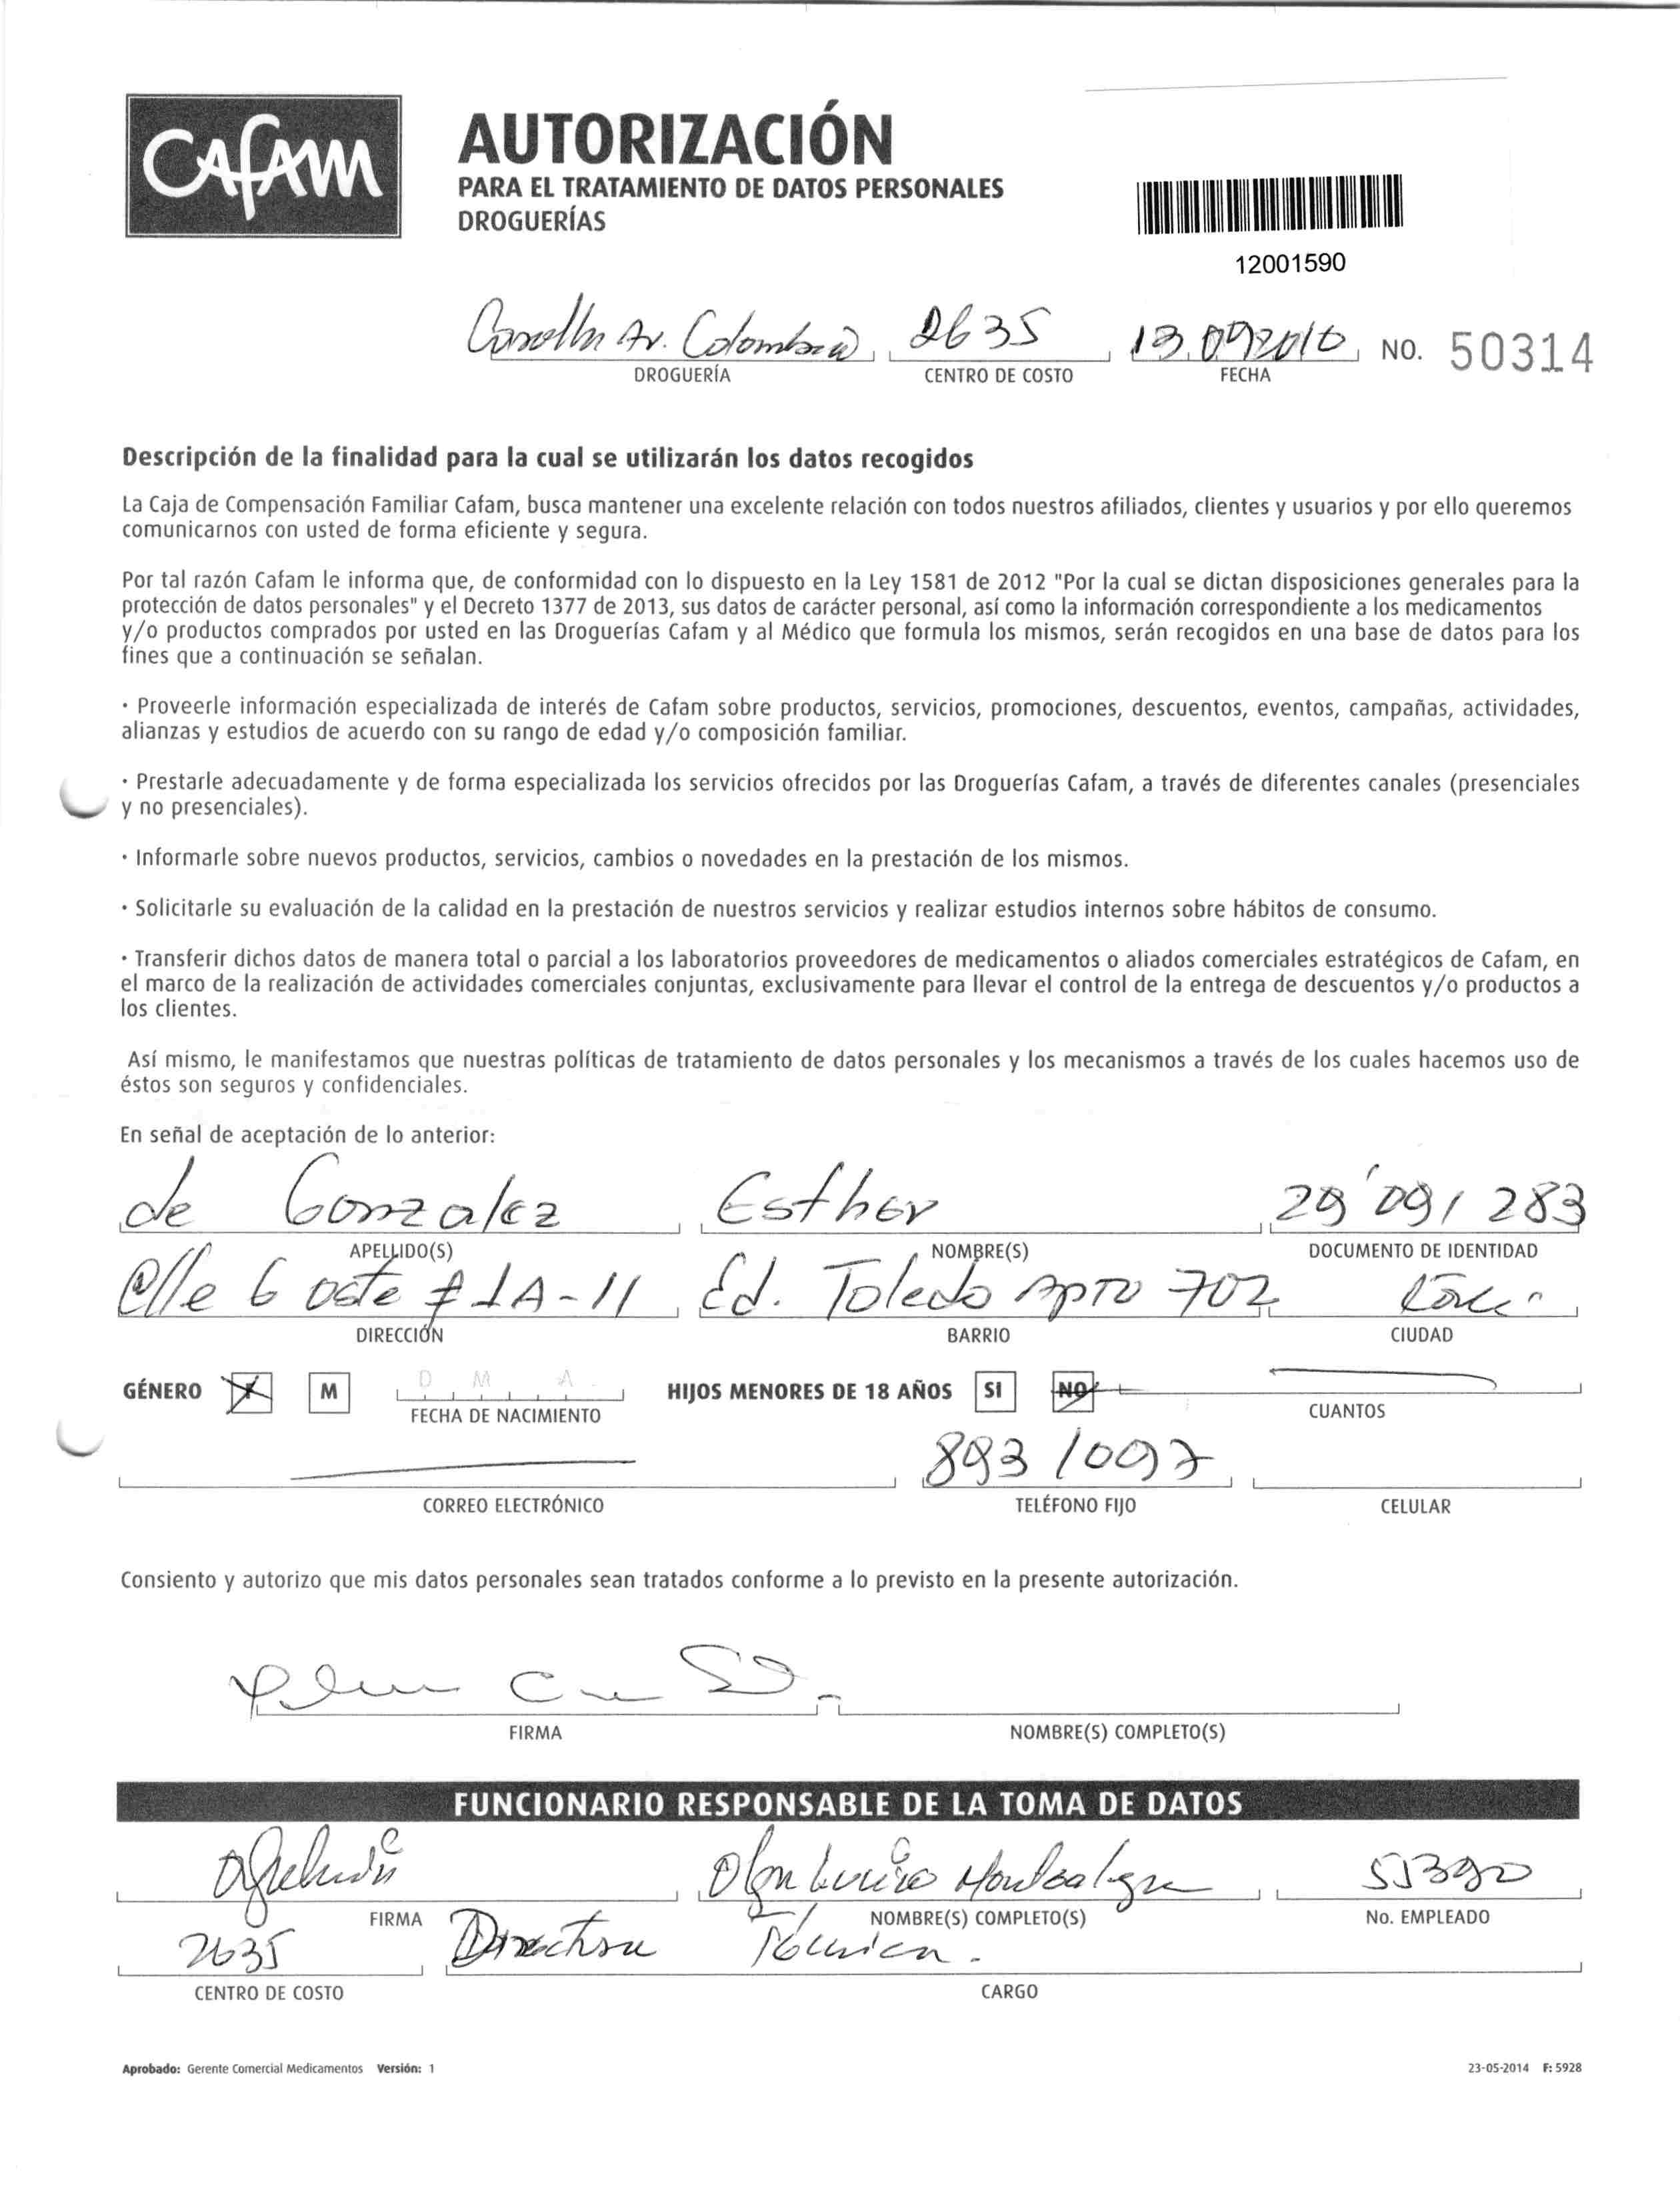 CAFAM
AUTORIZACIÓN
PARA EL TRATAMIENTO DE DATOS PERSONALES
DROGUERÍAS
12001590
Av. Colombia 2635 NO. 50314
DROGUERÍA CENTRO DE COSTO FECHA
Descripción de la finalidad para la cual se utilizarán los datos recogidos
La Caja de Compensación Familiar Cafam, busca mantener una excelente relación con todos nuestros afiliados, clientes y usuarios y por ello queremos
comunicarnos con usted de forma eficiente y segura.
Por tal razón Cafam le informa que, de conformidad con lo dispuesto en la Ley 1581 de 2012 "Por la cual se dictan disposiciones generales para la
protección de datos personales" y el Decreto 1377 de 2013, sus datos de carácter personal, así como la información correspondiente a los medicamentos
y/o productos comprados por usted en las Droguerías Cafam y al Médico que formula los mismos, serán recogidos en una base de datos para los
fines que a continuación se señalan.
· Proveerle información especializada de interés de Cafam sobre productos, servicios, promociones, descuentos, eventos, campañas, actividades,
alianzas y estudios de acuerdo con su rango de edad y/o composición familiar.
· Prestarle adecuadamente y de forma especializada los servicios ofrecidos por las Droguerías Cafam, a través de diferentes canales (presenciales
y no presenciales).
· Informarle sobre nuevos productos, servicios, cambios o novedades en la prestación de los mismos.
· Solicitarle su evaluación de la calidad en la prestación de nuestros servicios y realizar estudios internos sobre hábitos de consumo.
· Transferir dichos datos de manera total o parcial a los laboratorios proveedores de medicamentos o aliados comerciales estratégicos de Cafam, en
el marco de la realización de actividades comerciales conjuntas, exclusivamente para llevar el control de la entrega de descuentos y/o productos a
los clientes.
Así mismo, le manifestamos que nuestras políticas de tratamiento de datos personales y los mecanismos a través de los cuales hacemos uso de
éstos son seguros y confidenciales.
En señal de aceptación de lo anterior:
de Gonzalez Esther 29'091283
APELLIDO(S) NOMBRE(S) DOCUMENTO DE IDENTIDAD
Clle 6 oste # 1A-11 Ed. Toledo Apto 702 Cali
DIRECCIÓN BARRIO CIUDAD
GÉNERO F M D M A HIJOS MENORES DE 18 AÑOS SI NO
FECHA DE NACIMIENTO CUANTOS
893 1097
CORREO ELECTRÓNICO TELÉFONO FIJO CELULAR
Consiento y autorizo que mis datos personales sean tratados conforme a lo previsto en la presente autorización.
FIRMA NOMBRE(S) COMPLETO(S)
FUNCIONARIO RESPONSABLE DE LA TOMA DE DATOS
Olga Lucia 51390
FIRMA NOMBRE(S) COMPLETO(S) No. EMPLEADO
2635 Directora Técnica.
CENTRO DE COSTO CARGO
Aprobado: Gerente Comercial Medicamentos Versión: 1 23-05-2014 F: 5928